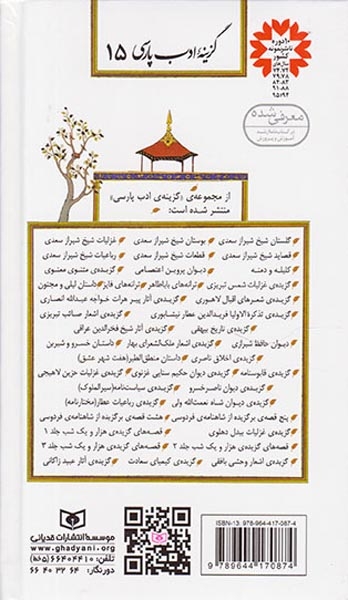 گزینهٔ ادب پارسی ۱۵
۱۰ دوره
ناشر نمونه
کشور
سال‌های
معرفی شده
در کتاب‌نامه رشد
آموزش و پرورش
از مجموعه‌ی «گزینه‌ی ادب پارسی»
منتشر شده است:
گلستان شیخ شیراز سعدی بوستان شیخ شیراز سعدی غزلیات شیخ شیراز سعدی
قصاید شیخ شیراز سعدی قطعات شیخ شیراز سعدی رباعیات شیخ شیراز سعدی
کلیله و دمنه دیوان پروین اعتصامی گزیده‌ی مثنوی معنوی
گزیده‌ی غزلیات شمس تبریزی ترانه‌های باباطاهر ترانه‌های فایز داستان لیلی و مجنون
گزیده‌ی شعرهای اقبال لاهوری گزیده‌ی آثار پیر هرات خواجه عبدالله انصاری
گزیده‌ی تذکرة الاولیا فریدالدین عطار نیشابوری گزیده‌ی اشعار صائب تبریزی
گزیده‌ی تاریخ بیهقی گزیده‌ی آثار شیخ فخرالدین عراقی
دیوان حافظ شیرازی گزیده‌ی اشعار ملک‌الشعرای بهار داستان خسرو و شیرین
گزیده‌ی اخلاق ناصری داستان منطق‌الطیر (هفت شهر عشق)
گزیده‌ی قابوسنامه گزیده‌ی دیوان حکیم سنایی غزنوی گزیده‌ی غزلیات حزین لاهیجی
گزیده‌ی دیوان ناصرخسرو گزیده‌ی سیاست‌نامه (سیرالملوک)
گزیده‌ی دیوان شاه نعمت‌الله ولی گزیده‌ی رباعیات عطار (مختارنامه)
پنج قصه‌ی برگزیده از شاهنامه‌ی فردوسی هشت قصه‌ی برگزیده از شاهنامه‌ی فردوسی
گزیده‌ی غزلیات بیدل دهلوی قصه‌های گزیده‌ی هزار و یک شب جلد ۱
قصه‌های گزیده‌ی هزار و یک شب جلد ۲ قصه‌های گزیده‌ی هزار و یک شب جلد ۳
گزیده‌ی اشعار وحشی بافقی گزیده‌ی کیمیای سعادت گزیده‌ی آثار عبید زاکانی
موسسه انتشارات قدیانی
www.ghadyani.org
تلفن: ۶۶۴۰۴۴۱۰ (۵ خط)
دورنگار: ۶۶ ۴۰ ۳۲ ۶۴
ISBN-13: 978-964-417-087-4
9 789644 170874